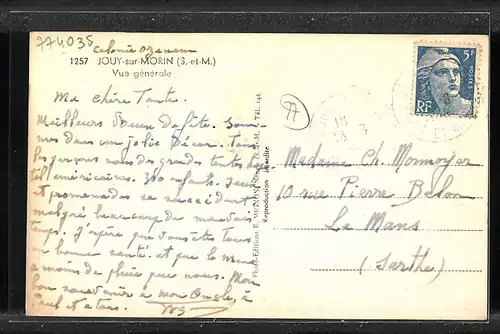 774035
Colonie Ozanam
1257 JOUY-sur-MORIN (S.-et-M.)
Vue générale
Ma chère Tante.
Meilleurs Vœux de fête. Som-
mes dans un jolie Décor. Tous
les garçons sous de grandes tentes
américaines. 300 enfants. Jeux
et promenades se succèdent
malgré beaucoup de mauvais
temps. J'espère que vous êtes tous
en bonne santé et que le
a moins de pluie que nous. Mon
bon souvenir à mon Oncle, à
et à tous.
77
Reproduction interdite
5F
POSTES
RF
Madame Ch. Monnoyer
10 rue Pierre Belon
Le Mans
(Sarthe)